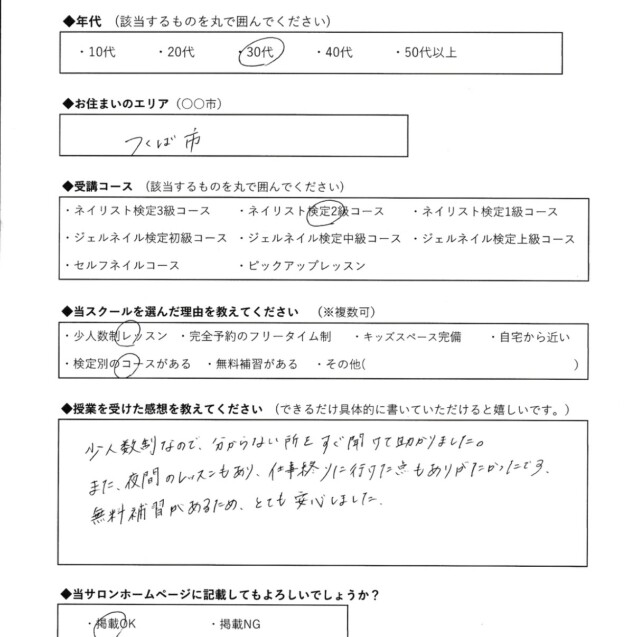 ◆年代 （該当するものを丸で囲んでください）
・10代 ・20代 ・30代 ・40代 ・50代以上
◆お住まいのエリア（〇〇市）
つくば市
◆受講コース （該当するものを丸で囲んでください）
・ネイリスト検定3級コース ・ネイリスト検定2級コース ・ネイリスト検定1級コース
・ジェルネイル検定初級コース ・ジェルネイル検定中級コース ・ジェルネイル検定上級コース
・セルフネイルコース ・ピックアップレッスン
◆当スクールを選んだ理由を教えてください （※複数可）
・少人数制レッスン ・完全予約のフリータイム制 ・キッズスペース完備 ・自宅から近い
・検定別のコースがある ・無料補習がある ・その他( )
◆授業を受けた感想を教えてください（できるだけ具体的に書いていただけると嬉しいです。）
少人数制なので、分からない所をすぐ聞けて助かりました。
また、夜間のレッスンもあり、仕事終りに行けた点もありがたかったです、
無料補習があるため、とても安心しました.
◆当サロンホームページに記載してもよろしいでしょうか？
・掲載OK ・掲載NG